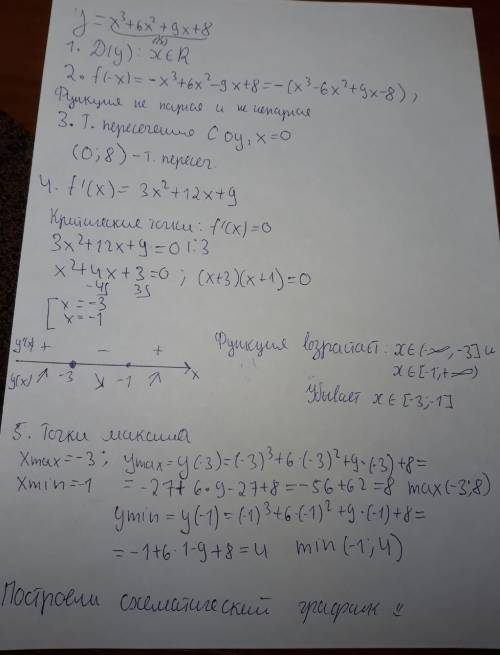 y = x³+6x²+9x+8
1. D(y): x∈R
2. f(-x) = -x³+6x²-9x+8 = -(x³-6x²+9x-8);
Функция не парная и не непарная
3. Т. пересечения с oy, x=0
(0; 8) - т. пересеч.
4. f'(x) = 3x²+12x+9
Критические точки: f'(x)=0
3x²+12x+9=0 |:3
x²+4x+3=0 ; (x+3)(x+1)=0
x = -3
x = -1
y'(x) + - +
y(x) ↗ -3 ↘ -1 ↗ x
Функция возрастает: x∈(-∞, -3] и
x∈[-1,+∞)
Убывает x∈[-3;-1]
5. Точки максима
xmax = -3; ymax = y(-3) = (-3)³+6·(-3)²+9·(-3)+8 =
xmin = -1 = -27+6·9-27+8 = -56+62 = 8 max(-3;8)
ymin = y(-1) = (-1)³+6·(-1)²+9·(-1)+8 =
= -1+6·1-9+8 = 4 min(-1; 4)
Построели схематический график